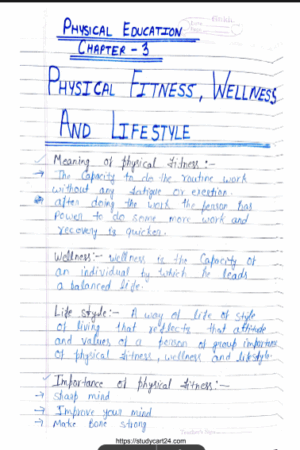 PHYSICAL EDUCATION
CHAPTER - 3
PHYSICAL FITNESS, WELLNESS
AND LIFESTYLE
Meaning of physical fitness:-
→ The Capacity to do the routine work
without any fatigue or erection.
after doing the work the person has
Power to do some more work and
recovery is quicker.
Wellness:- Wellness is the Capacity of
an individual by which he leads
a balanced life.
Life style:- A way of life of style
of living that reflects that attitude
and values of a person of group importance
of physical fitness, wellness and lifestyle.
Importance of physical fitness:-
→ Sharp mind
→ Improve your mind
→ Make Bone strong
https://studycart24.com